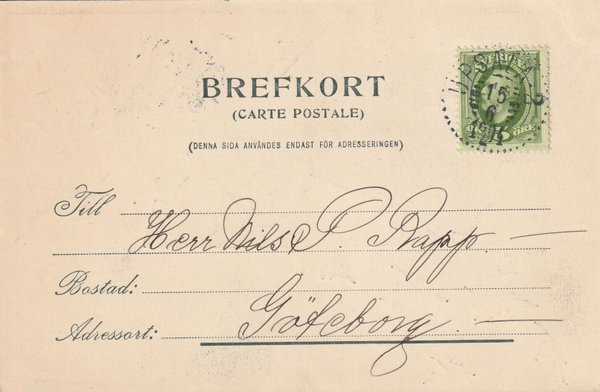 BREFKORT
(CARTE POSTALE)
(DENNA SIDA ANVÄNDES ENDAST FÖR ADRESSERINGEN)
UPSALA 2
15
6
Till
Herr Nils P. Rapp
Bostad:
Adressort: Göteborg